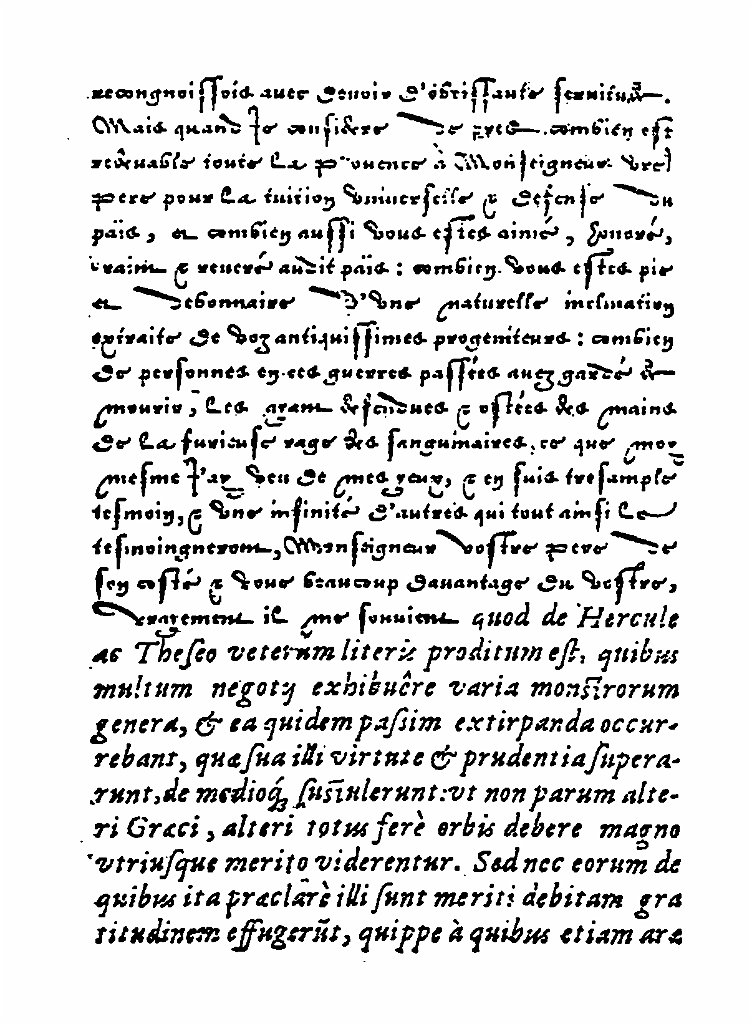 recongnoissois auec deuoir d'obeissante seruitude.
Mais quand Je considere de pres combien est
redeuable toute La prouence à Monseigneur vrē
pere pour La tuition vniuerselle & defense du
païs, et combien aussi vous estes aimé, honoré,
craint & reueré audit païs : combien vous estes pie
et debonnaire d'vne naturelle inclination
extraite de voz antiquissimes progeniteurs : combien
de personnes en ces guerres passées auez gardé de
mourir, Les ayant defendues & ostées des mains
de La furieuse rage des sanguinaires, ce que moy
mesme J'ay veu de mes yeux, & en suis tresample
tesmoin, & vne infinité d'autres qui tout ainsi Le
tesmoingneront, Monseigneur vostre pere de
sen costé & vous beaucoup dauantage du vostre,
vrayement il me souuient quod de Hercule
ac Theſeo veterum literis proditum eſt, quibus
multum negotij exhibuêre varia monſtrorum
genera, & ea quidem paſsim extirpanda occur-
rebant, quæ ſua illi virtute & prudentia ſupera-
runt, de medioq́; ſuſtulerunt: vt non parum alte-
ri Græci, alteri totus ferè orbis debere magno
vtriuſque merito viderentur. Sed nec eorum de
quibus ita præclarè illi ſunt meriti debitam gra
titudinem effugerūt, quippe à quibus etiam aræ